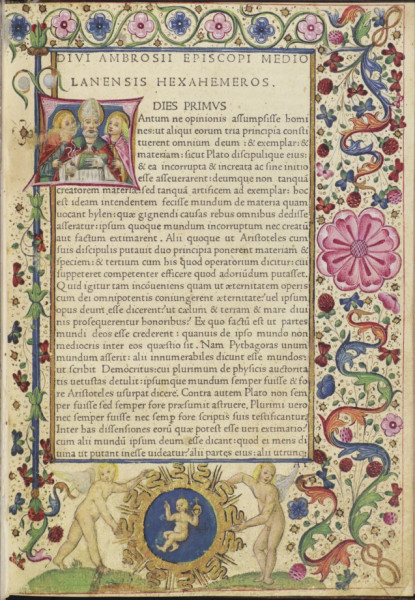 DIVI AMBROSII EPISCOPI MEDIO
LANENSIS HEXAHEMEROS.
DIES PRIMVS
Antum ne opinionis assumpsisse homi
nes: ut aliqui eorum tria principia consti
tuerent omnium deum: & exemplar: &
materiam: sicut Plato discipulique eius:
& ea incorrupta & increata ac sine initio
esse asseuerarent: deumque non tanquā
creatorem materiæ sed tanquā artificem ad exemplar: hoc
est ideam intendentem fecisse mundum de materia quam
uocant hylen: quæ gignendi causas rebus omnibus dedisse
asseratur: ipsum quoque mundum incorruptum nec creatū
aut factum extimarent. Alii quoque ut Aristoteles cum
suis discipulis putauit duo principia ponerent materiam &
speciem: & tertium cum his quod operatorium dicitur: cui
suppeteret competenter efficere quod adoriūdum putasset.
Quid igitur tam incōueniens quam ut æternitatem operis
cum dei omnipotentis coniungerent æternitate? uel ipsum
opus deum esse dicerent? ut cælum & terram & mare diui
nis prosequerentur honoribus? Ex quo factū est ut partes
mundi deos esse crederent: quanuis de ipso mundo non
mediocris inter eos quæstio sit. Nam Pythagoras unum
mundum asserit: alii innumerabiles dicunt esse mundos:
ut scribit Democritus: cui plurimum de physicis auctorita
tis uetustas detulit: ipsumque mundum semper fuisse & fo
re Aristoteles usurpat dicere. Contra autem Plato non sem
per fuisse sed semper fore præsumit astruere. Plurimi uero
nec semper fuisse nec semp fore scriptis suis testificantur.
Inter has dissensiones eorū quæ potest esse ueri extimatio?
cum alii mundū ipsum deum esse dicant: quod ei mens di
uina ut putant inesse uideatur: alii partes eius: alii utrunque